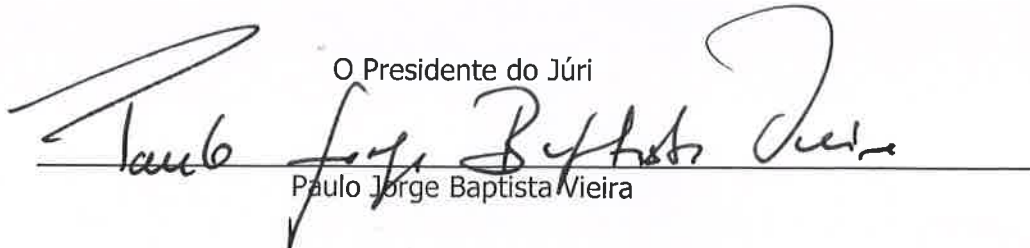 O Presidente do Júri
Paulo Jorge Baptista Vieira
Paulo Jorge Baptista Vieira